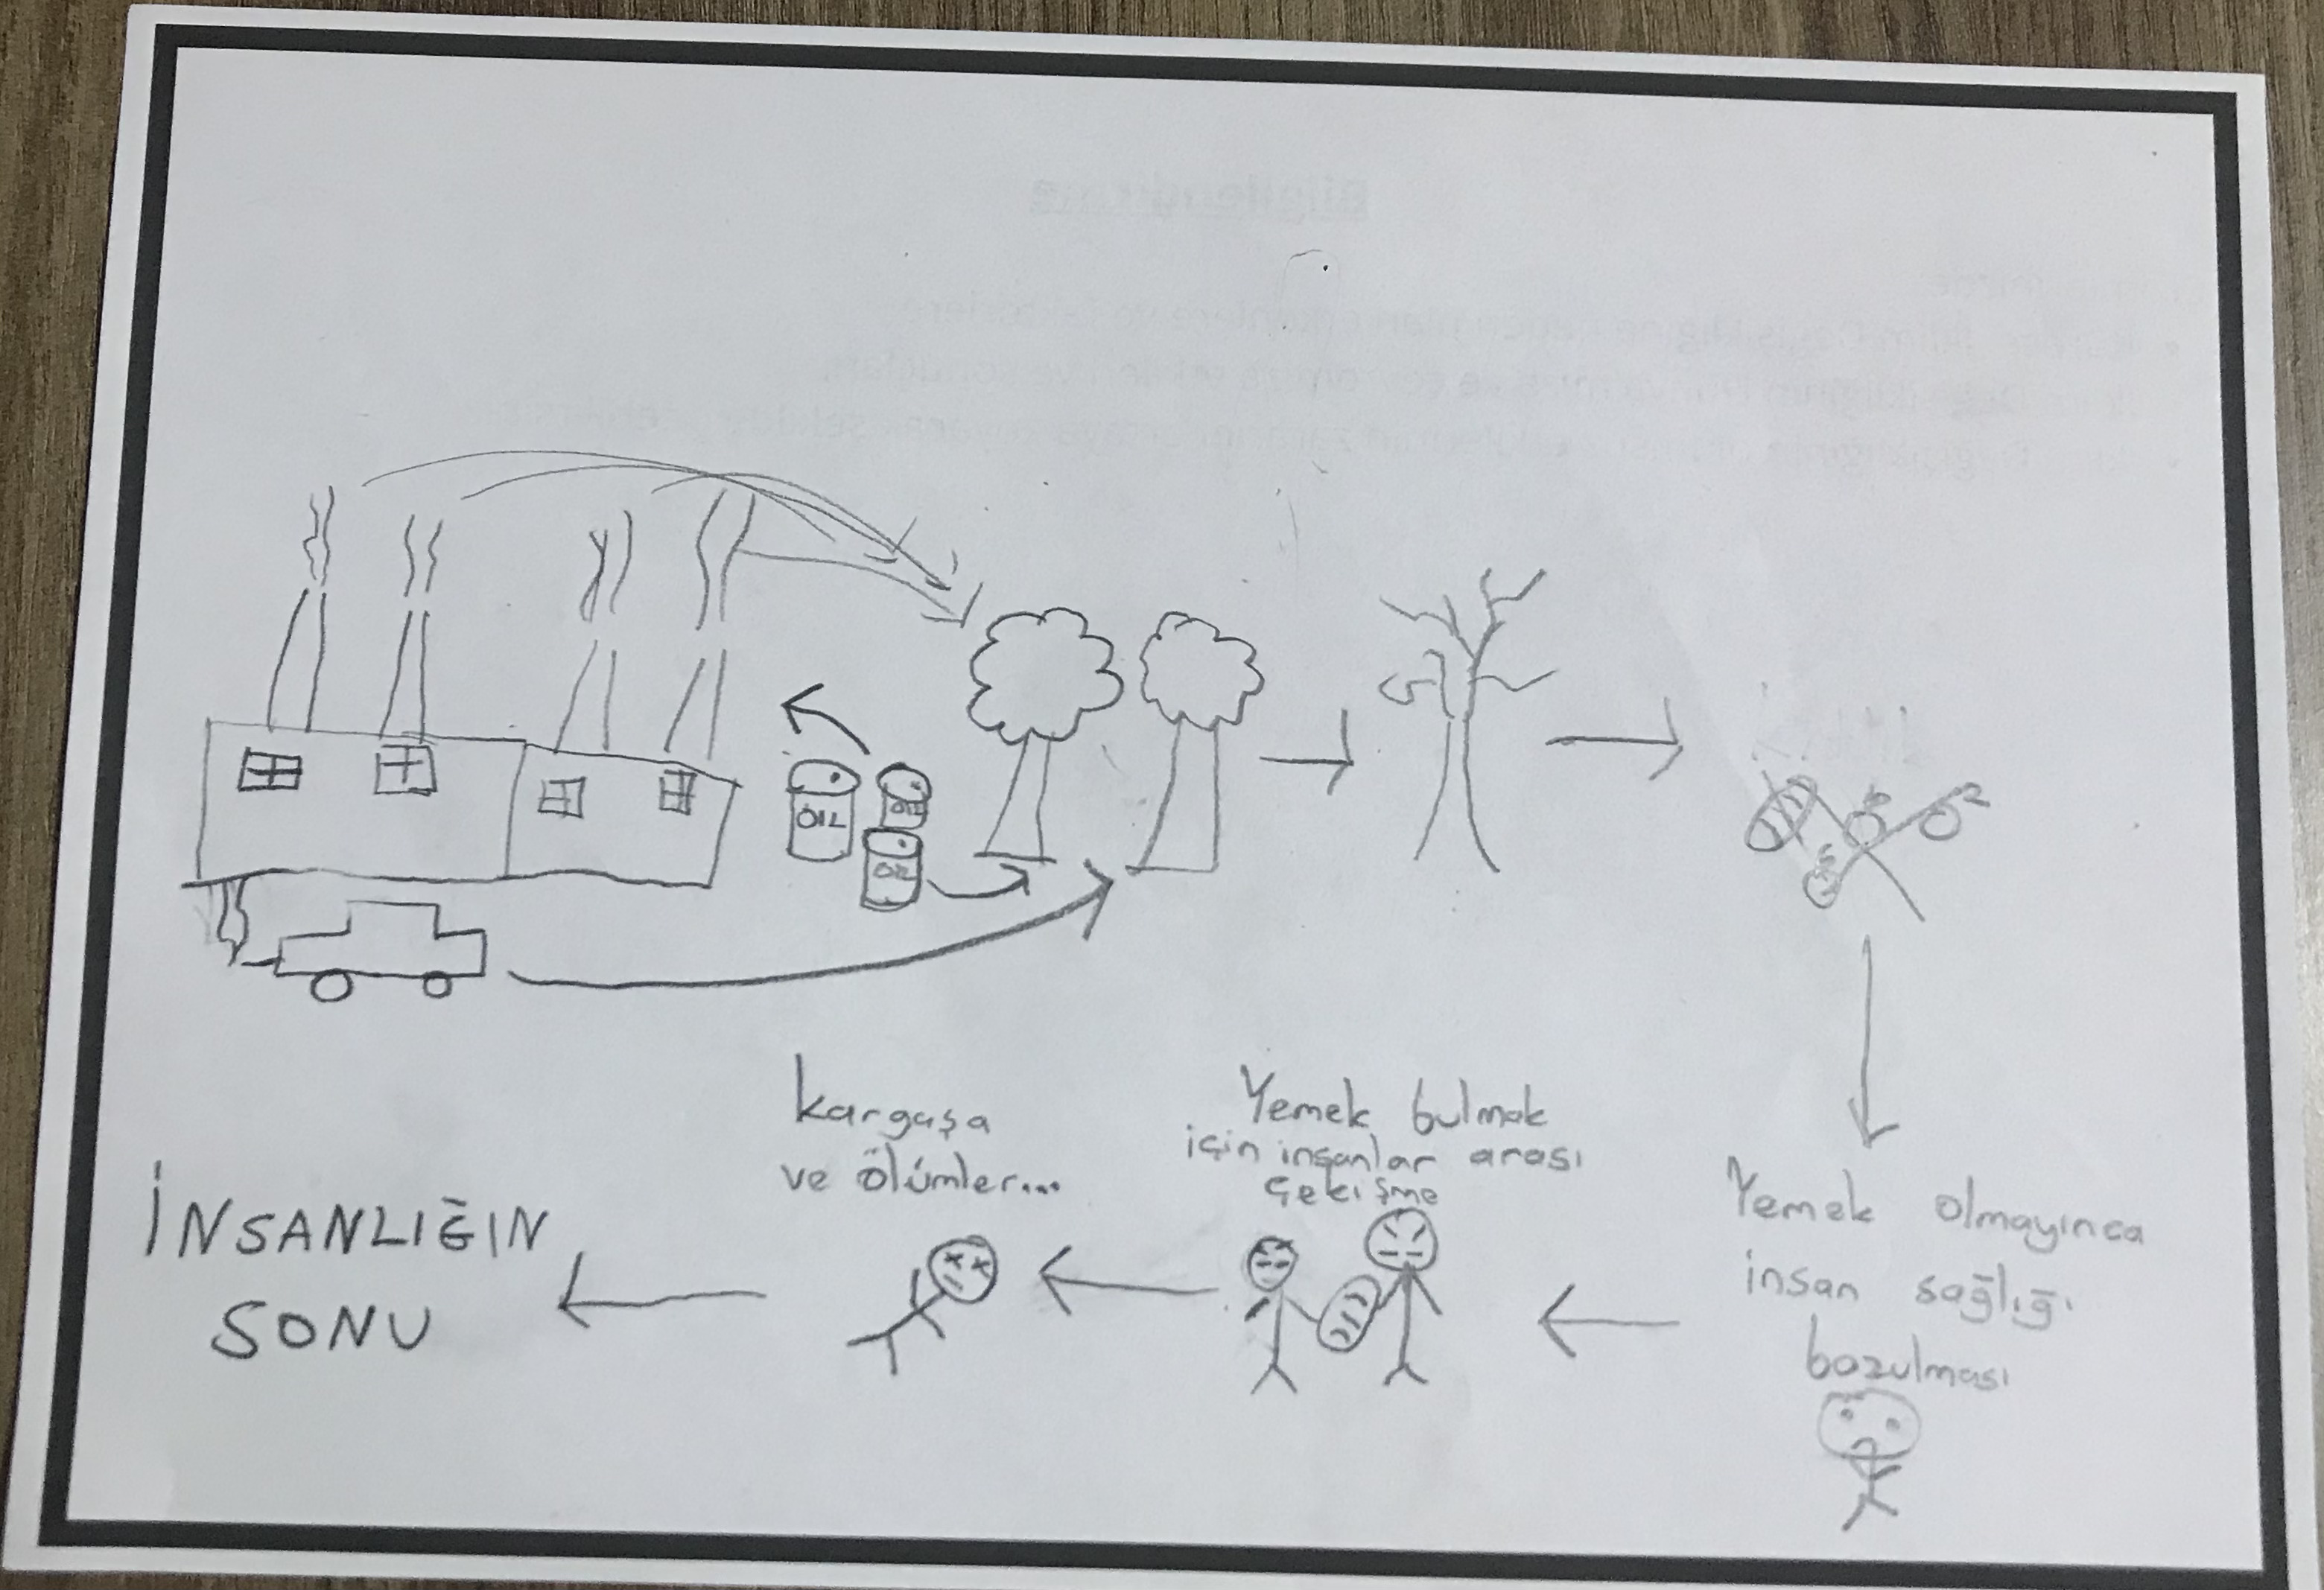 OIL
OIL
OIL
Yemek olmayınca
insan sağlığı
bozulması
Yemek bulmak
için insanlar arası
çekişme
kargaşa
ve ölümler...
İNSANLIĞIN
SONU
Bilgilendirme